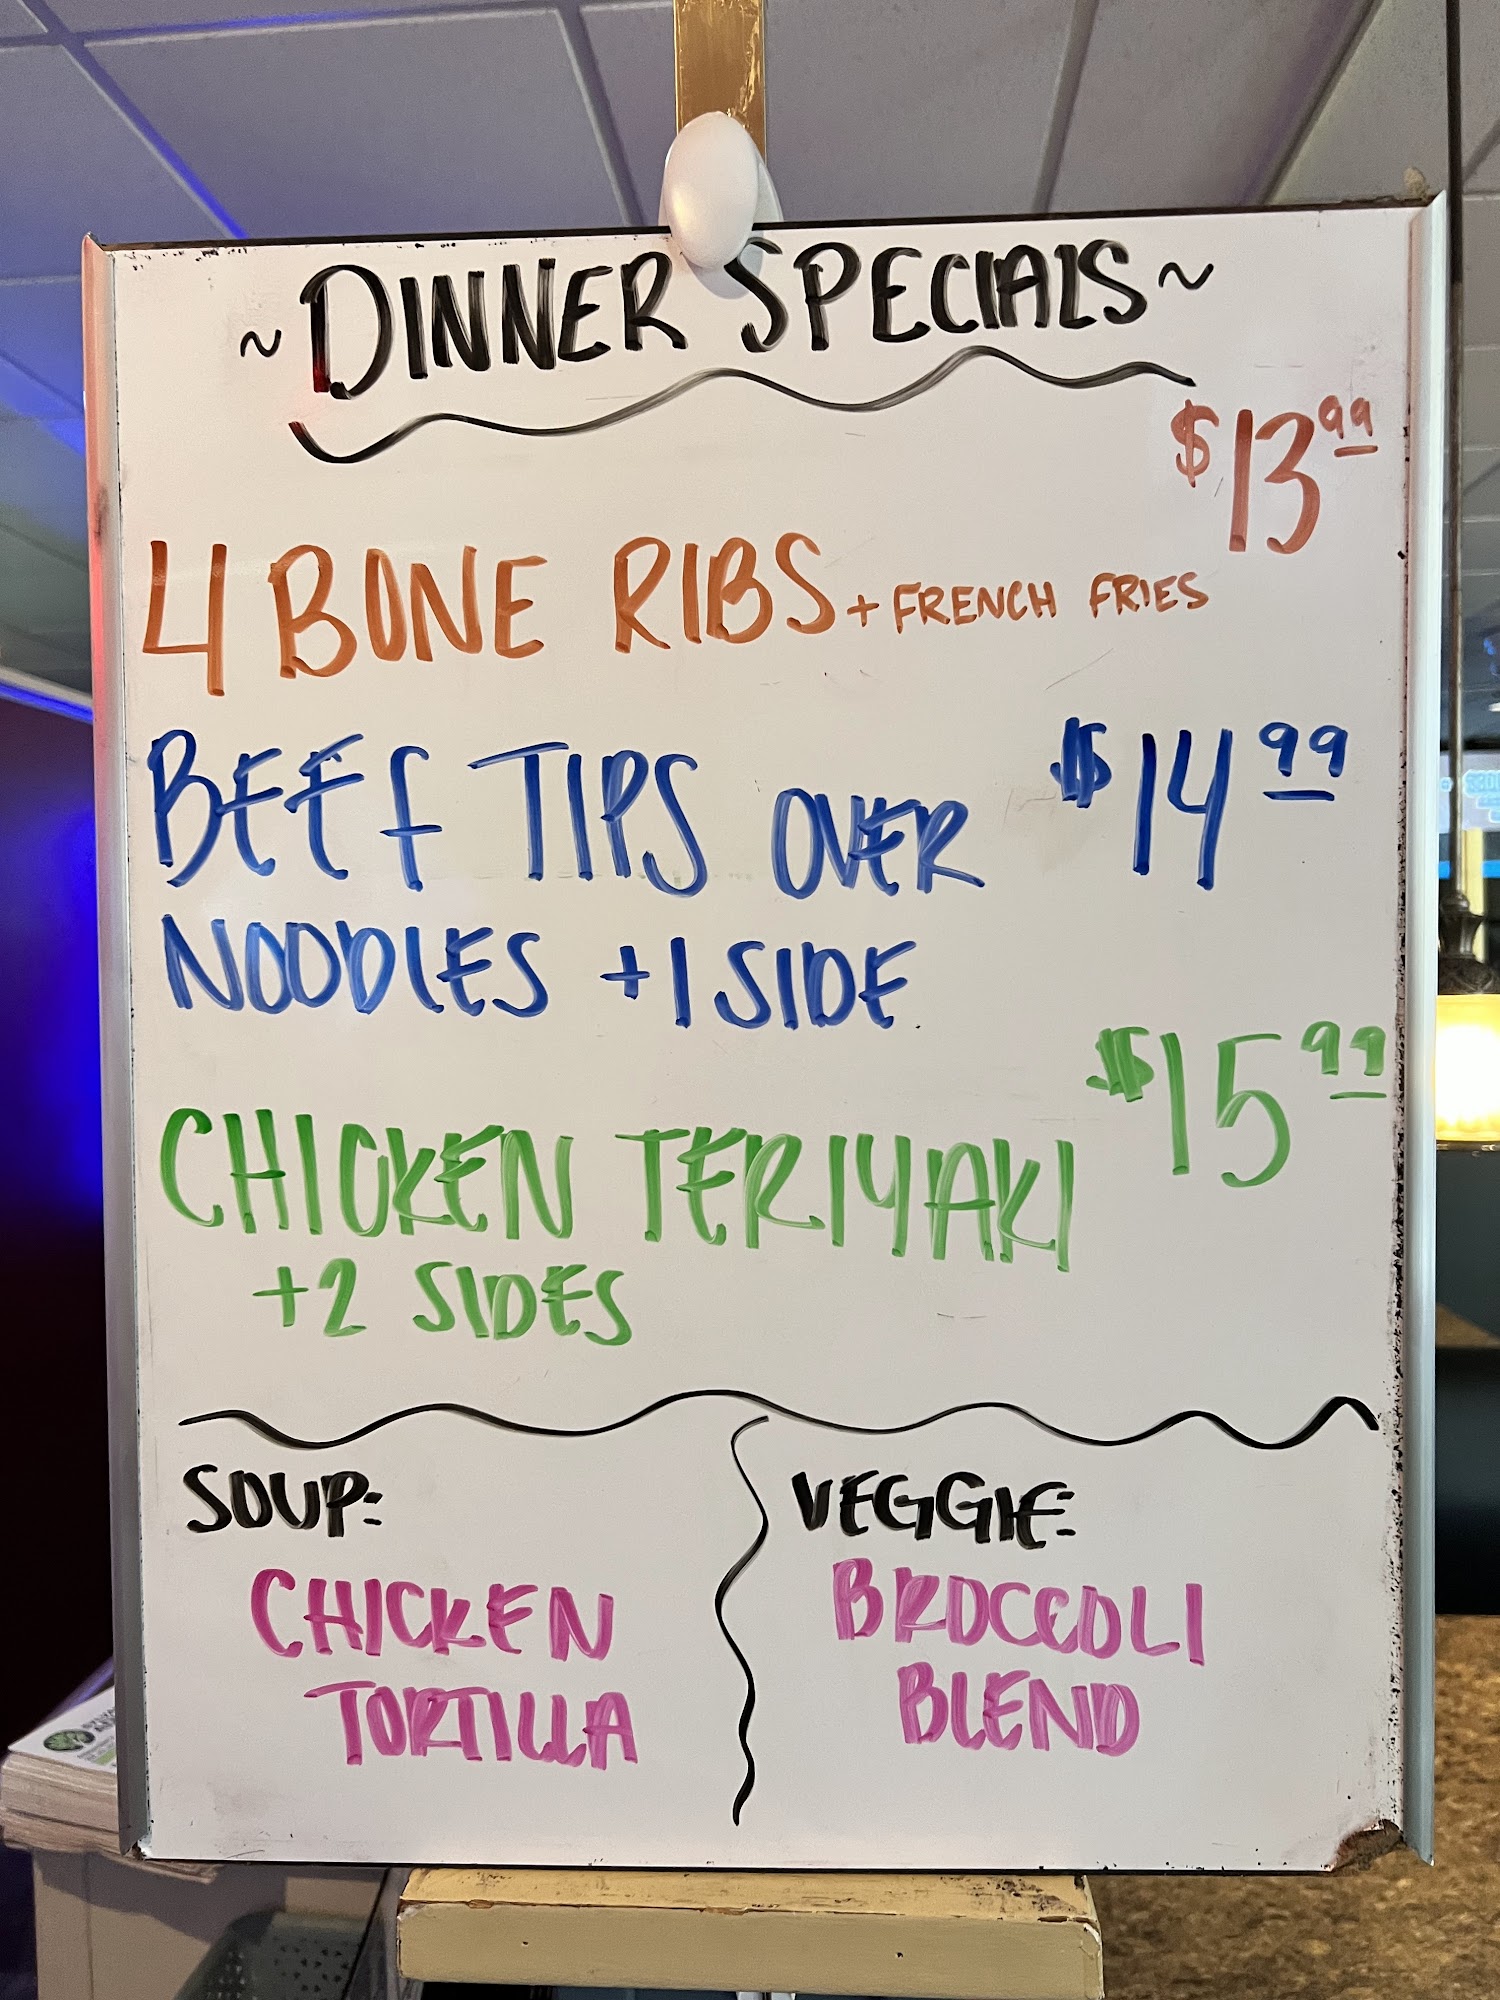 ~ DINNER SPECIALS ~
$13.99
4 BONE RIBS + FRENCH FRIES
BEEF TIPS OVER $14.99
NOODLES +1 SIDE
$15.99
CHICKEN TERIYAKI
+2 SIDES
SOUP: VEGGIE:
CHICKEN BROCCOLI
TORTILLA BLEND